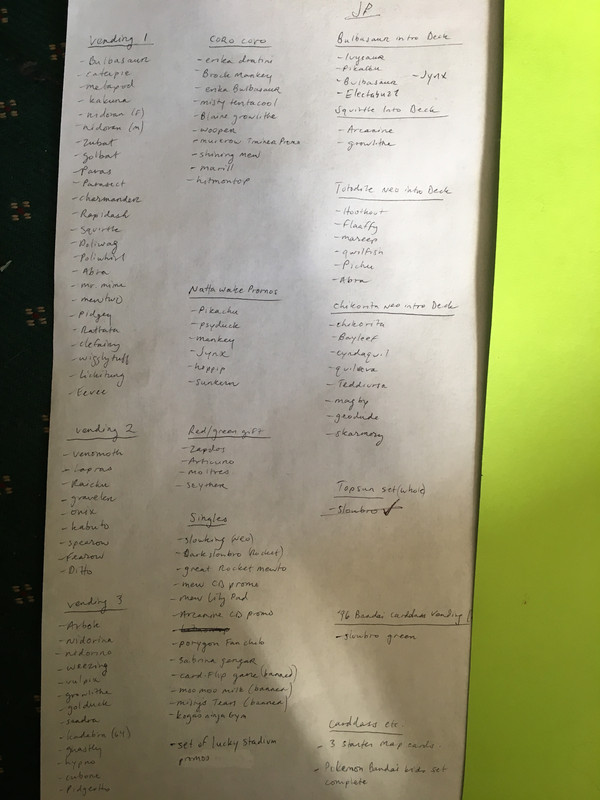 JP
Vending 1
- Bulbasaur
- caterpie
- metapod
- kakuna
- nidoran (F)
- nidoran (m)
- Zubat
- golbat
- Paras
- Parasect
- charmander
- Rapidash
- Squirtle
- Poliwag
- Poliwhirl
- Abra
- mr. mime
- mewtwo
- Pidgey
- Rattata
- clefairy
- wigglytuff
- Lickitung
- Eevee
vending 2
- venomoth
- Lapras
- Raichu
- graveler
- onix
- kabuto
- spearow
- fearow
- Ditto
vending 3
- Arbok
- nidorina
- nidorino
- weezing
- vulpix
- growlithe
- golduck
- seadra
- kadabra (64)
- ghastly
- hypno
- cubone
- Pidgeotto
Coro coro
- erika dratini
- Brock mankey
- erika Bulbasaur
- misty tentacool
- Blaine growlithe
- wooper
- murkrow Trainer Promo
- shining mew
- marill
- hitmontop
Natta wake Promos
- Pikachu
- psyduck
- mankey
- Jynx
- hoppip
- sunkern
Red/green gift
- Zapdos
- Articuno
- moltres
- scyther
Singles
- slowking (neo)
- Dark slowbro (Rocket)
- great Rocket mewto
- mew CD promo
- mew Lily Pad
- Arcanine CD promo
- porygon Fan club
- sabrina gengar
- card flip game (banned)
- moo moo milk (banned)
- mistys Tears (banned)
- koga ninja gym
- set of lucky stadium promos
Bulbasaur intro Deck
- Ivysaur
- Pikachu
- Bulbasaur
- Jynx
- Electabuzz
Squirtle Into Deck
- Arcanine
- growlithe
Totodile Neo intro Deck
- Hoothoot
- Flaaffy
- mareep
- qwilfish
- Pichu
- Abra
chikorita Neo intro Deck
- chikorita
- Bayleef
- cyndaquil
- quilava
- Teddiursa
- magby
- geodude
- skarmory
Topsun set (whole)
- slowbro ✓
'96 Bandai Carddass Vending
- slowbro green
Carddass etc
- 3 starter map cards
- Pokemon Bandai
complete